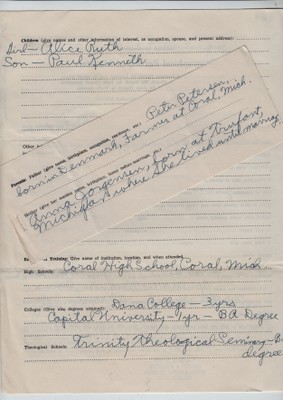 Children (give names and other information of interest, as occupation, spouse, and present address):
Girl — Alice Ruth
Son — Paul Kenneth
Other
Parents: Father (give name, birthplace, occupation, residence, etc.)
Peter Petersen,
born in Denmark, Farmer at Coral, Mich.
Mother (give her maiden name, birthplace, home before marriage, etc.)
Anna Jorgensen, born at Trufant,
Michigan where she lived until marriage
Training: Give name of institution, location, and when attended.
High School: Coral High School, Coral, Mich.
Colleges (Give also degrees obtained): Dana College — 3 yrs
Capital University — 1 yr — BA Degree
Theological Schools: Trinity Theological Seminary — B
degree